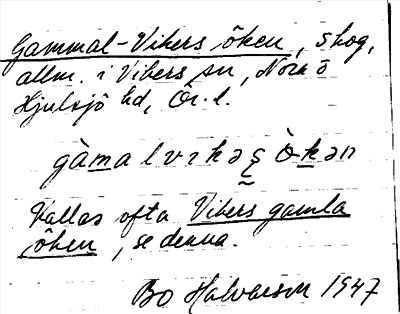 Gammal-Vikers öken, skog,
allm. i Vikers sn, Nora o
Hjulsjö hd, Ör. l.
gàmalvɪkəʂ ò̱kən
Kallas ofta Vikers gamla
öken, se denna.
Bo Halvarson 1947